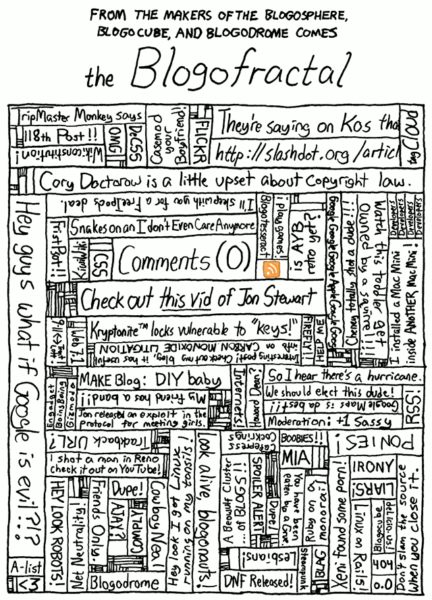 FROM THE MAKERS OF THE BLOGOSPHERE,
BLOGOCUBE, AND BLOGODROME COMES
the Blogofractal
TripMaster Monkey says
118th Post!!
Wikiconstitution!
OMG
DeCSS
Casemod your Boyfriend!
FLICKR
They're saying on Kos that
http://slashdot.org/articl
tag Cloud
Cory Doctorow is a little upset about copyright law.
Hey guys what if Google is evil?!?
I'll sleep with you for a FreeIpods deal.
Snakes on an I don't Even Care Anymore
First Post!!
CSS
Comments (0)
Blogotesseract
I play games
is AYB retro yet?
Google Google Google Apple Google Google
Cheney totally shot a dude!!!
Watch this toddler get
Owned by a squirrel!!!
Developers
Developers
Developers
Developers
I installed a Mac Mini
inside ANOTHER Mac Mini!
Check out this vid of Jon Stewart
9/11 <-> Trent
Web 7.1
Kryptonite™ locks vulnerable to "keys!"
Interesting post! Check out my blog, it has useful
info on CARBON MONOXIDE LITIGATION
CREEPY!
HELP ME
Engadget
BoingBoing
Gizmodo
MAKE Blog: DIY baby
My friend has a band!!
Jon released an exploit in the
protocol for meeting girls.
Internets!
Howard Dean?
So I hear there's a hurricane.
We should elect this dude!
Google Maps is da best!!
Moderation: +1 Sassy
RSS!
Trackback URL?
I shot a man in Reno
check it out on YouTube!
HEY LOOK ROBOTS!
Net Neutrality!
Friends Only.
Dupe!
AJAX?
COMPLY!
Cowboy Neal
Blogodrome
A-list
<3
Hey look I got Linux
running on my tonsils!
Look alive, blogonauts!
Cafepress
Cockrings
BOOBIES!!
MIA
A Beautiful Cluster
...of BLOGS!!
SPOILER ALERT!
Dupe!
You have been
eaten by a Grue
Lesbians!
DNF Released!
Steampunk
BLAG
Ruby on a
monorail
PONIES!
IRONY
LIARS!
Xeni found some porn!
Linux on Rails!
Blogocube
del.icio.us!
404
0.0
Don't slam the source
when you close it.